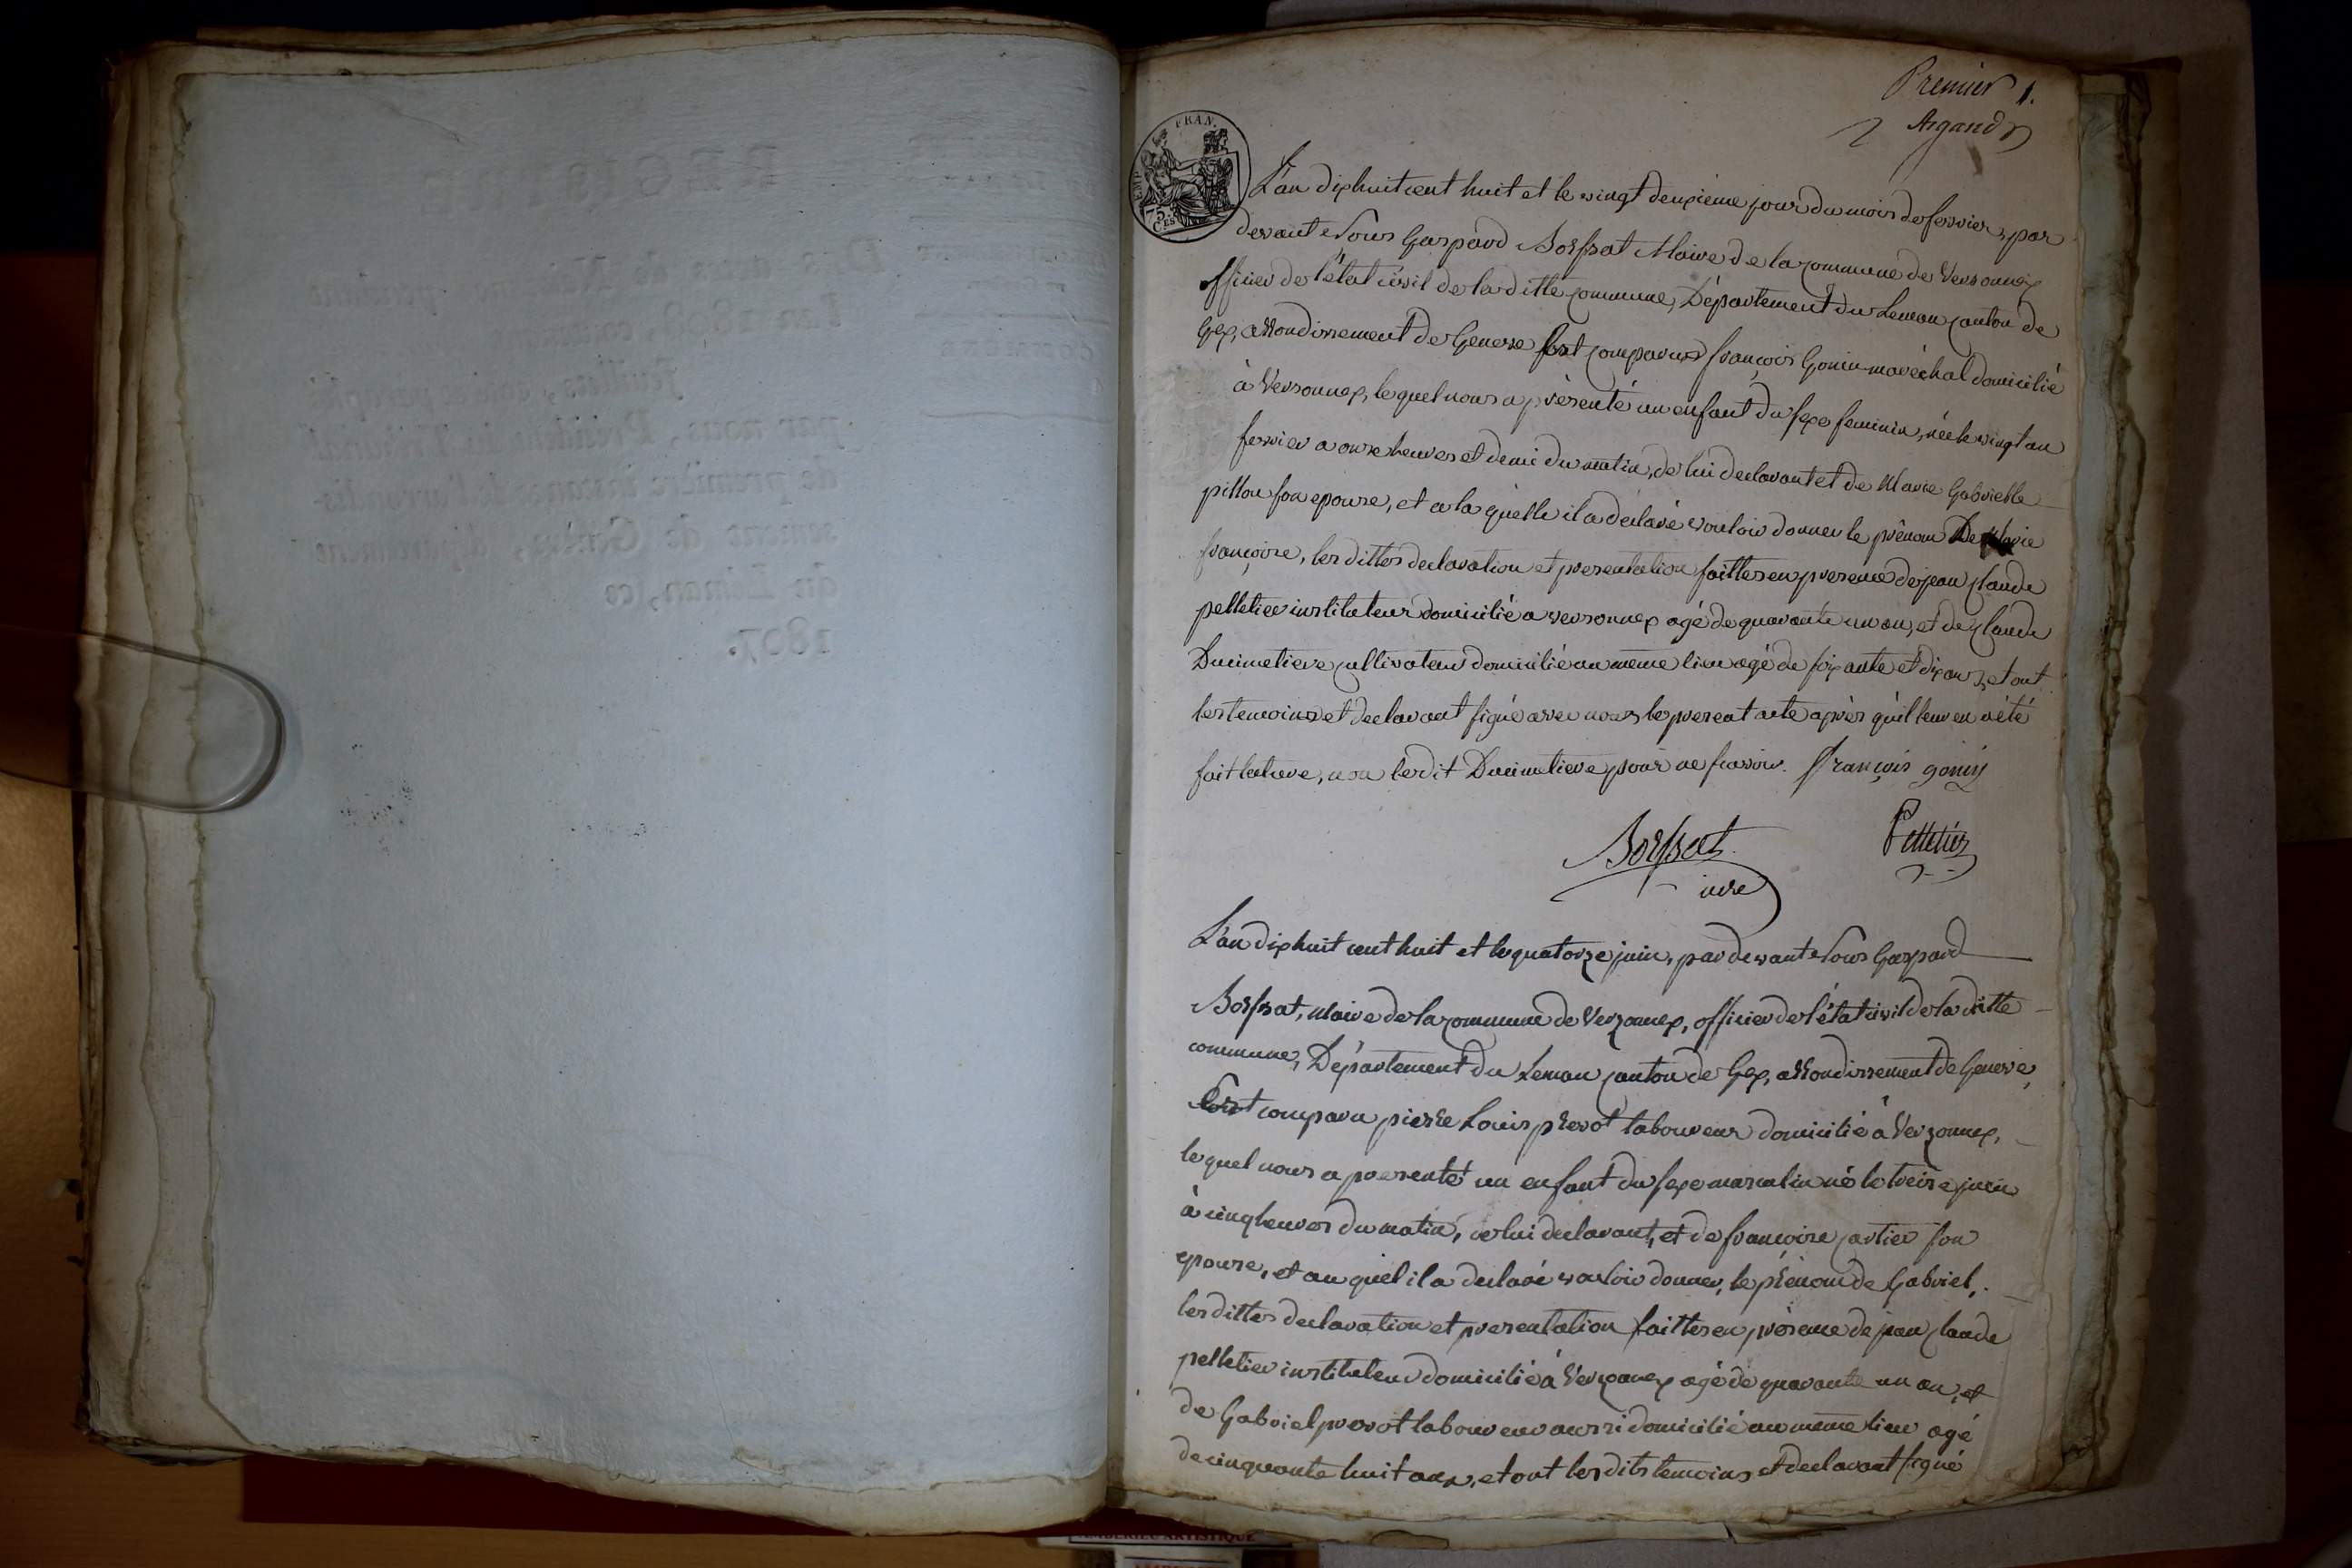 Premier 1.
Argand
EMP. FRAN.
75.
CES
L'an dixhuit cent huit et le vingt deuxieme jour du mois de fevrier, par
devant Nous Gaspard Borssat Maire de la commune de Versonnex
officier de l'état civil de la ditte commune, Département du Leman canton de
Gex, arrondissement de Geneve est comparus françois Gonin maréchal domicilié
à Versonnex, lequel nous a présenté un enfant du sexe feminin, née le vingt un
fevrier a onze heures et demi du matin, de lui declarant et de Marie Gabrielle
pitton son epouse, et a la quelle il a déclaré vouloir donner le prénom De Marie
françoise, les dittes declaration et presentation faittes en presence de jean claude
pelletier instituteur domicilié a versonnex agé de quarante un an, et de claude
Ducimetiere cultivateur domicilié au meme lieu agé de soixante et dix ans, et ont
les temoins et declarant signé avec nous le present acte après qu'il leur en a été
fait lecture, non ledit Ducimetiere pour ne savoir. François gonin
Borssat Pelletier
L'an dixhuit cent huit et le quatorze juin, par devant Nous Gaspard
Borssat, Maire de la commune de Verzonnex, officier de l'état civil de la ditte
commune, Département du Leman canton de Gex, arrondissement de Geneve,
Est comparu pierre Louis prevot laboureur domicilié à Verzonnex,
lequel nous a presenté un enfant du sexe masculin né le treize juin
à cinq heures du matin, de lui declarant, et de françoise cartier son
epouse, et au quel il a declaré vouloir donner, le prénom de Gabriel,
les dittes declaration et presentation faittes en présence de jean claude
pelletier instituteur domicilié à Verzonnex agé de quarante un an, et
de Gabriel prevot laboureur aussi domicilié au meme lieu agé
de cinquante huit ans, et ont les dits temoins et declarant signé